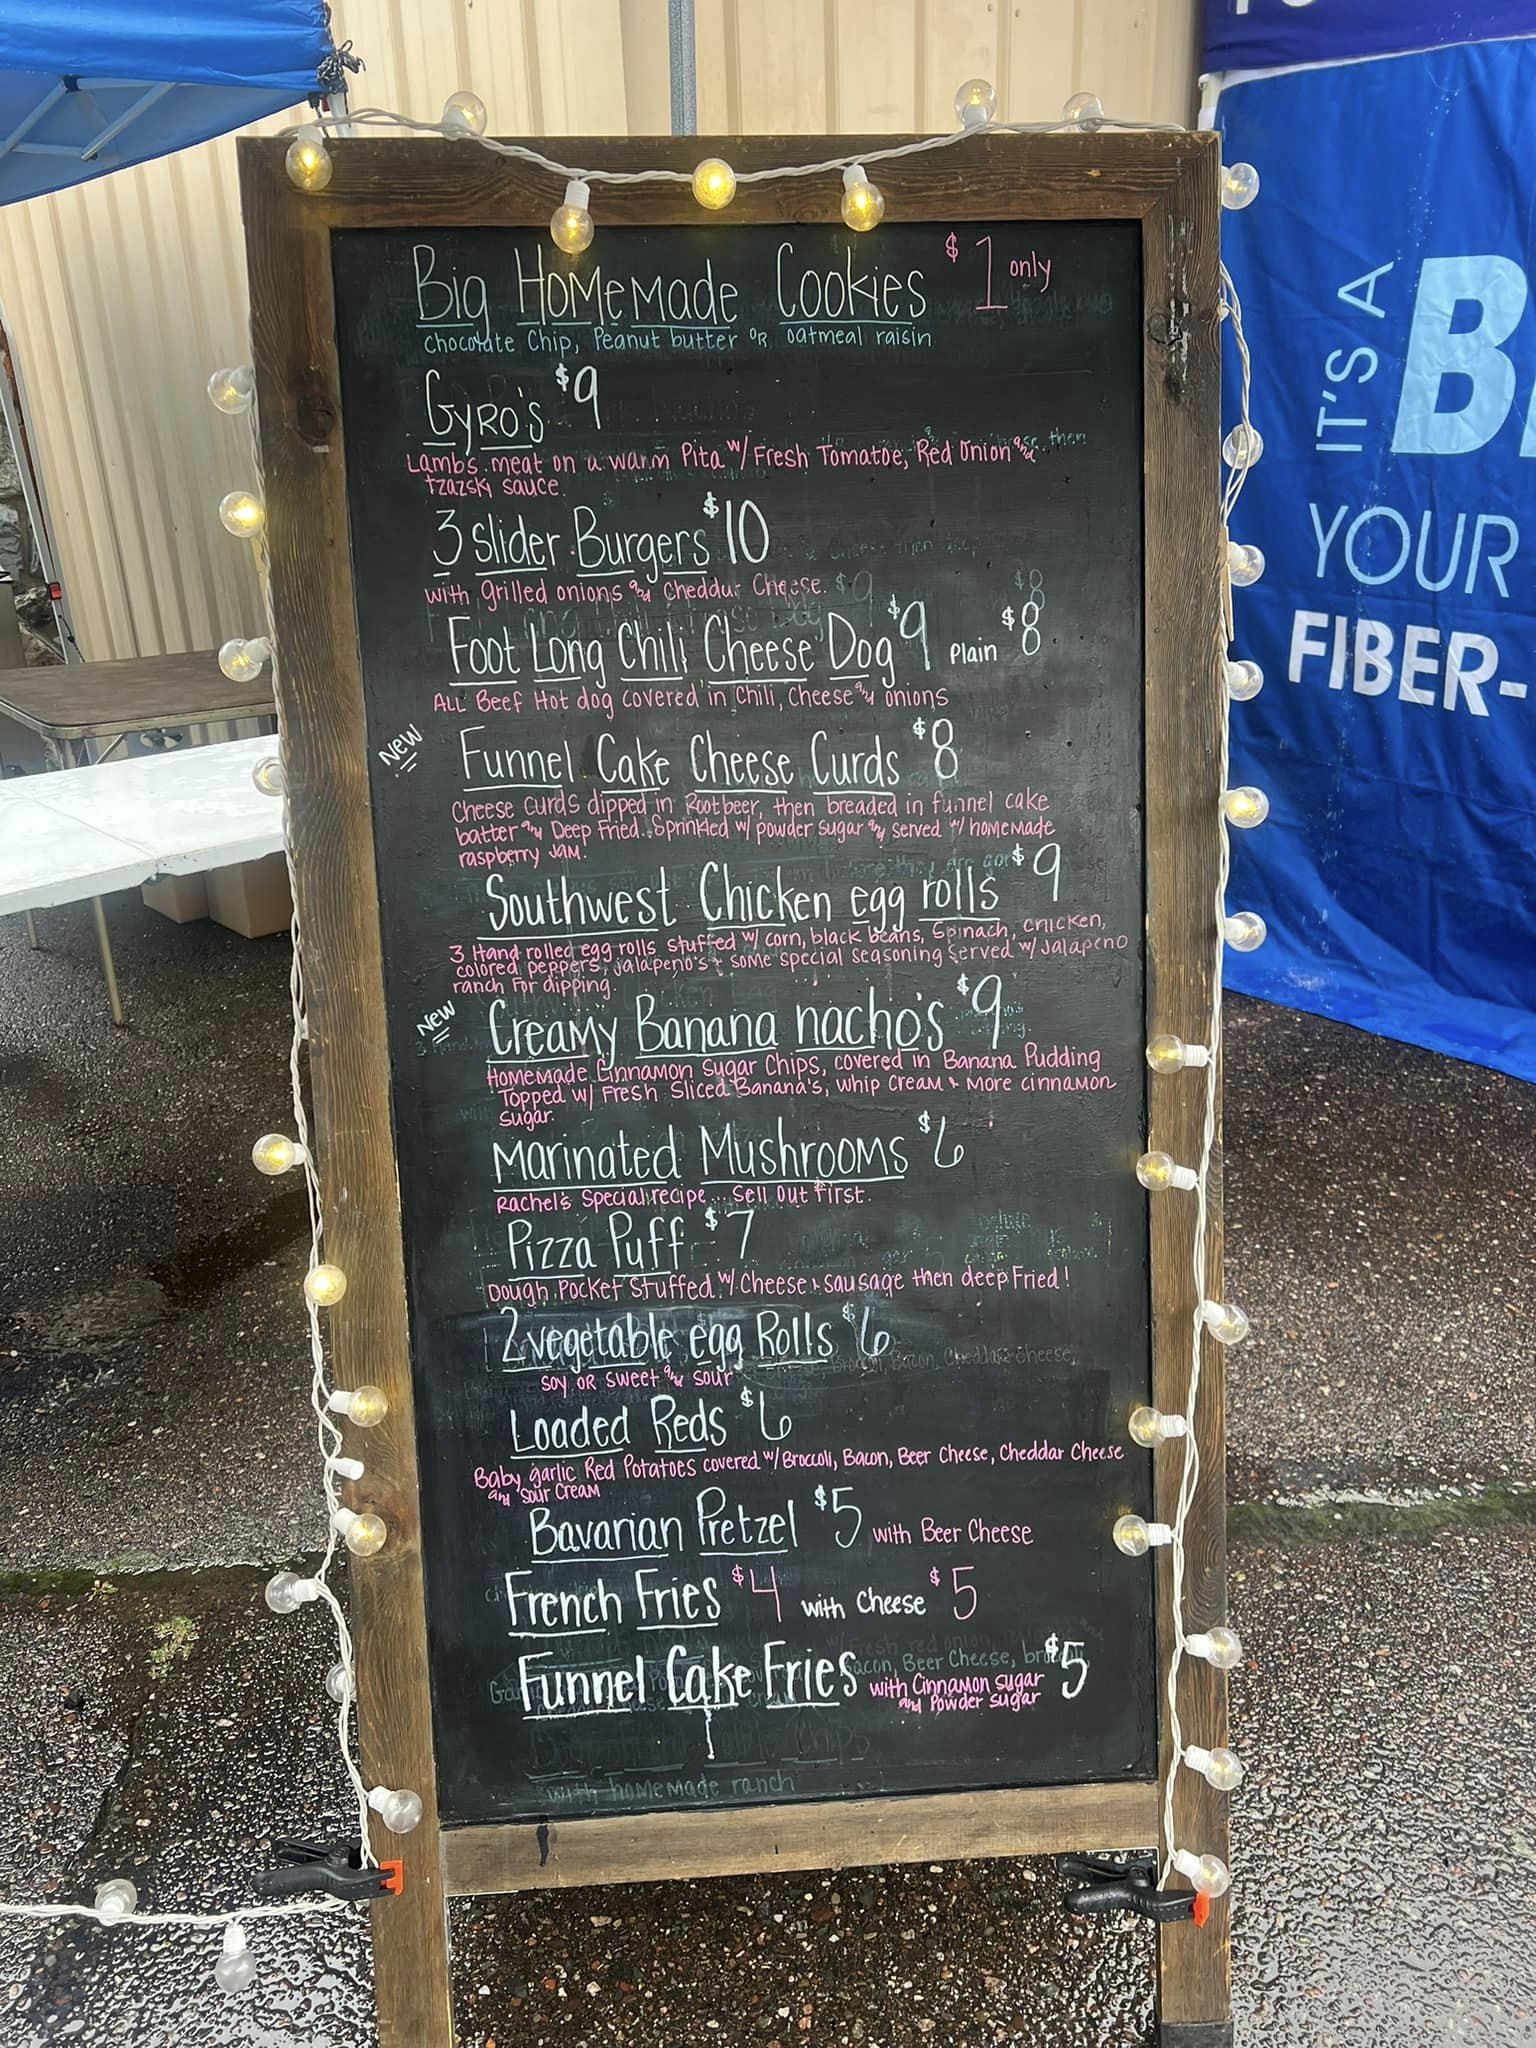 Big Homemade Cookies $1 only
chocolate Chip, Peanut butter OR oatmeal raisin
Gyro's $9
Lambs meat on a warm Pita w/ Fresh Tomatoe, Red Onion and
tzazski sauce
3 slider Burgers $10
with grilled onions and Cheddar Cheese.
Foot Long Chili Cheese Dog $9 Plain $8
ALL Beef Hot dog covered in Chili, Cheese and onions
New Funnel Cake Cheese Curds $8
Cheese Curds dipped in Rootbeer, then breaded in funnel cake
batter and Deep Fried. Sprinkled w/ powder sugar and served w/ homemade
raspberry Jam.
Southwest Chicken egg rolls $9
3 Hand rolled egg rolls stuffed w/ corn, black beans, Spinach, chicken,
colored peppers, jalapeno's + some special seasoning served w/ Jalapeno
ranch For dipping.
New Creamy Banana nacho's $9
Homemade Cinnamon Sugar Chips, covered in Banana Pudding
Topped w/ Fresh Sliced Banana's, whip cream + More cinnamon
sugar.
Marinated Mushrooms $6
Rachel's Special recipe... Sell Out First.
Pizza Puff $7
Dough Pocket Stuffed w/ Cheese + sausage then deep Fried!
2 vegetable egg Rolls $6
soy OR sweet and sour
Loaded Reds $6
Baby garlic Red Potatoes covered w/ Broccoli, Bacon, Beer Cheese, Cheddar Cheese
and Sour Cream
Bavarian Pretzel $5 with Beer Cheese
French Fries $4 with Cheese $5
Funnel Cake Fries with Cinnamon sugar $5
and Powder sugar
with homemade ranch
IT'S A
YOUR
FIBER-